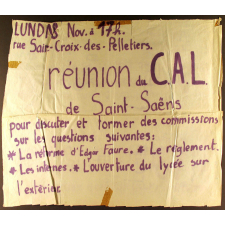 LUNDI 18 Nov. à 17h.
rue Sair-Croix-des-Pelletiers.
réunion du C.A.L.
de Saint-Saëns
pour discuter et former des commissions
sur les questions suivantes:
* La réforme d'Edgar Faure. * Le règlement.
* Les internes. * L'ouverture du lycée sur
l'extérieur